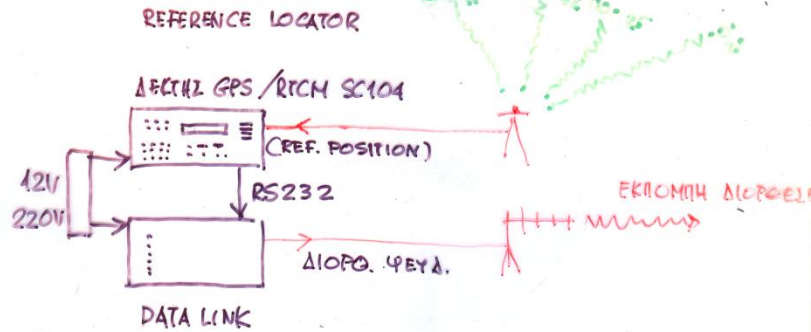 REFERENCE LOCATOR
ΔΕΚΤΗΣ GPS /RTCM SC104
(REF. POSITION)
12V
220V
RS232
ΕΚΠΟΜΠΗ
ΔΙΟΡΘ. ΨΕΥΔ.
DATA LINK